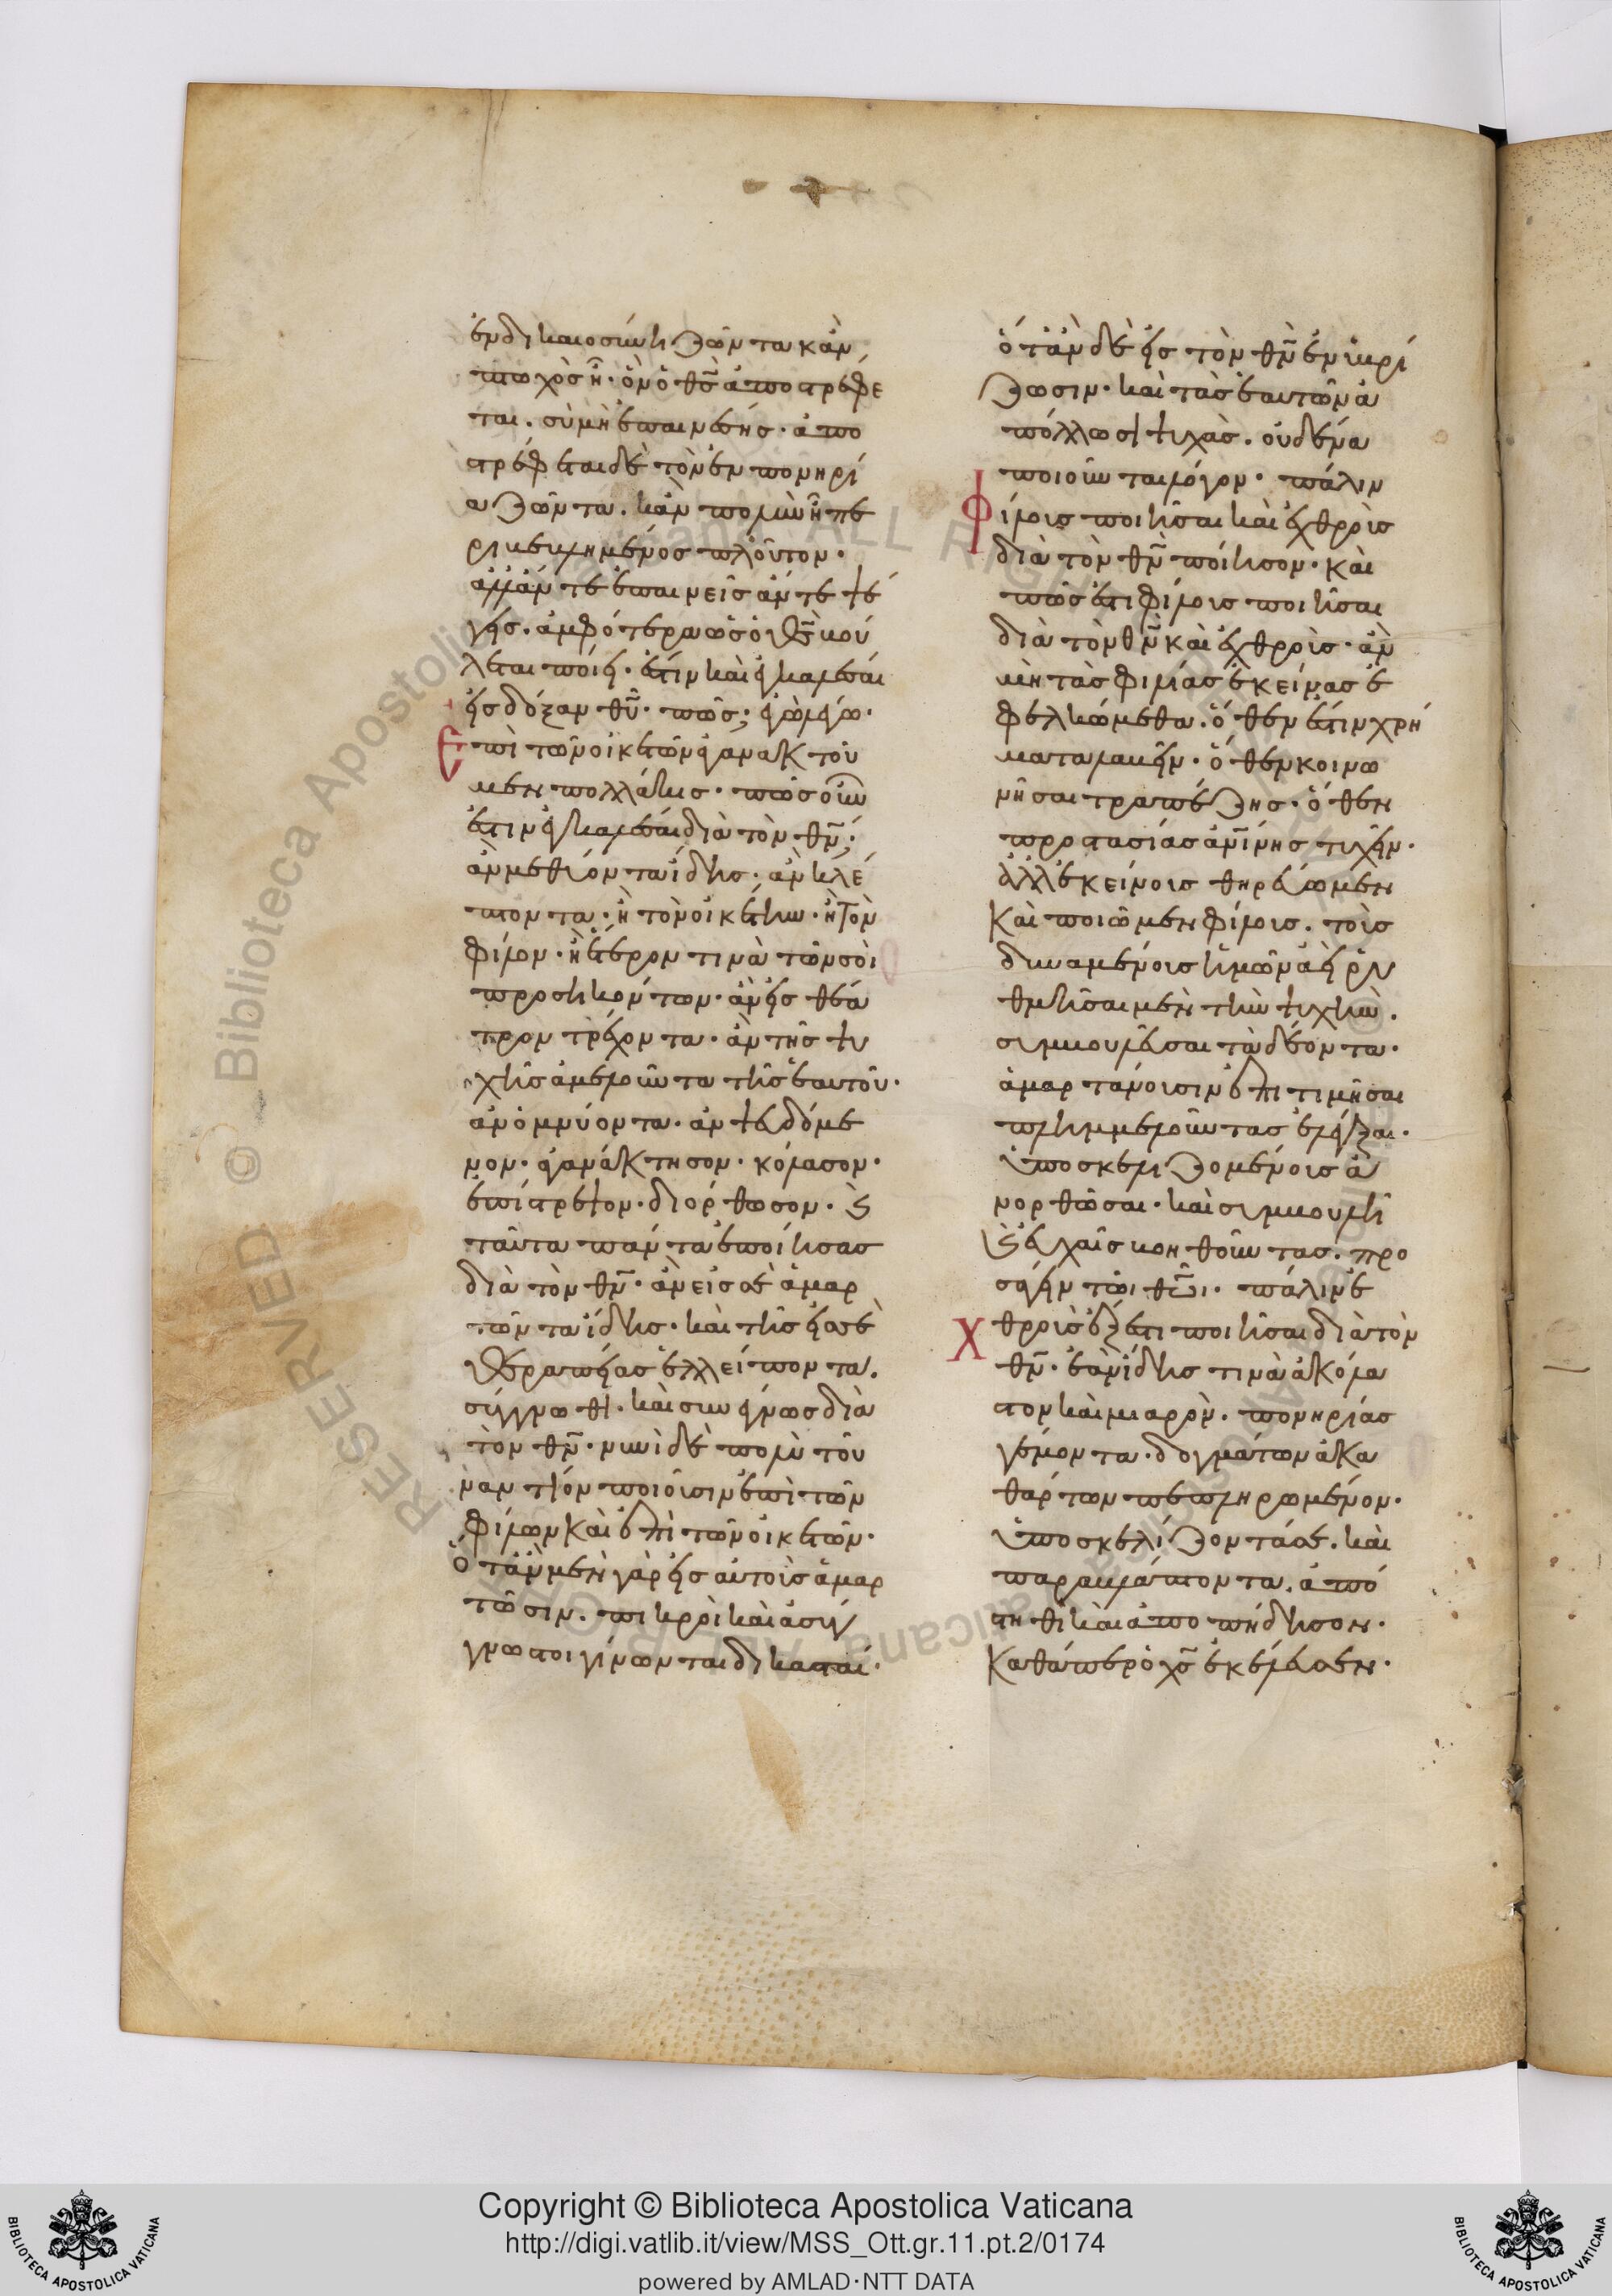 ἐν δικαιοσύνη ζῶντα κἂν
πτωχὸς ἦ· ὃν ὁ θ̅ς̅ ἀποστρέφε
ται. σὺ μὴ ἐπαινέσης· ἀπο
στρέφεται δὲ τὸν ἐν πονηρί
α ζῶντα. κἂν πολὺν ἦ πε
ρικείμενος πλοῦτον·
ἀλλ' ἄν τε ἐπαινεῖς ἄν τε ψέ
γης. ἀμφότερα ὡς ὁ θ̅ς̅ βού
λεται ποίει· ἔστιν καὶ ἐγκαλέσαι
εἰς δόξαν θ̅υ̅· πῶς; ἐγὼ λέγω·
Ἐπὶ τῶν οἰκετῶν ἀγανακτοῦ
μεν πολλάκις· πῶς οὖν
ἔστιν ἐγκαλέσαι διὰ τὸν θ̅ν̅;
ἂν μεθύοντα ἴδης· ἂν κλέ
πτοντα· ἢ τὸν οἰκέτην· ἢ τὸν
φίλον· ἢ ἕτερον τινὰ τῶν σοὶ
προσηκόντων· ἂν εἰς θέα
τρον τρέχοντα· ἂν τῆς ψυ
χῆς ἀμελοῦντα τῆς ἑαυτοῦ·
ἂν ὀμνύοντα· ἂν ψευδόμε
νον· ἀγανάκτησον· κόλασον·
ἐπίστρεψον· διόρθωσον· καὶ
ταῦτα πάντα ἐποίησας
διὰ τὸν θ̅ν̅· ἂν εἰς σὲ ἁμαρ
τῶντα ἴδης· καὶ τῆς εἰς σὲ
θεραπείας ἐλλείποντα.
σύγγνωθι· καὶ συνέγνως διὰ
τὸν θ̅ν̅· νυνὶ δὲ πολὺ τοῦ
ναντίον ποιοῦσιν ἐπὶ τῶν
φίλων καὶ ἐπὶ τῶν οἰκετῶν·
ὅταν μὲν γὰρ εἰς αὐτοὺς ἁμαρ
τῶσιν. πικροὶ καὶ ἀσύγ
γνωστοι γίνονται δικασταί·
ὅταν δὲ εἰς τὸν θ̅ν̅ ἐνυβρί
ζωσιν· καὶ τὰς ἑαυτῶν ἀ
πόλλωσι ψυχὰς. οὐδένα
ποιοῦνται λόγον· πάλιν
φίλους ποιῆσαι καὶ ἐχθροὺς
διὰ τὸν θ̅ν̅ ποίησον· καὶ
πῶς ἔστι φίλους ποιῆσαι
διὰ τὸν θ̅ν̅ καὶ ἐχθροὺς· ἂν
μὴ τὰς φιλίας ἐκείνας ἐ
φελκώμεθα. ὅθεν ἔστιν χρή
ματα λαβεῖν· ὅθεν κοινω
νῆσαι τραπέζης· ὅθεν
προστασίας ἀν̅ίνης τυχεῖν·
ἀλλ' ἐκείνους θηρεύωμεν
καὶ ποιῶμεν φίλους. τοὺς
δυναμένους ἡμῶν ἀεὶ ῥυ
θμῆσαι μὲν τὴν ψυχὴν.
συμβουλεῦσαι τὰ δέοντα·
ἁμαρτάνουσιν ἐπιτιμῆσαι
πλημμελοῦντας ἐλέγξαι·
ὑποσκελιζομένους ἀ
νορθῶσαι· καὶ συμβουλῆ
καὶ εὐχαῖς βοηθοῦντας. προ
σάγειν τῶι θ̅ῶ̅ι· πάλιν ἐ
χθροὺς ἔξεστι ποιῆσαι διὰ τὸν
θ̅ν̅· ἐὰν ἴδης τινὰ ἀκόλα
στον καὶ μιαρὸν. πονηρίας
γέμοντα· δογμάτων ἀκα
θάρτων πεπληρωμένον·
ὑποσκελίζοντά σε. καὶ
παραβλάπτοντα. ἀπό
στηθι καὶ ἀποπήδησον·
καθάπερ ὁ χ̅ς̅ ἐκέλευσεν·
Copyright © Biblioteca Apostolica Vaticana
http://digi.vatlib.it/view/MSS_Ott.gr.11.pt.2/0174
powered by AMLAD·NTT DATA